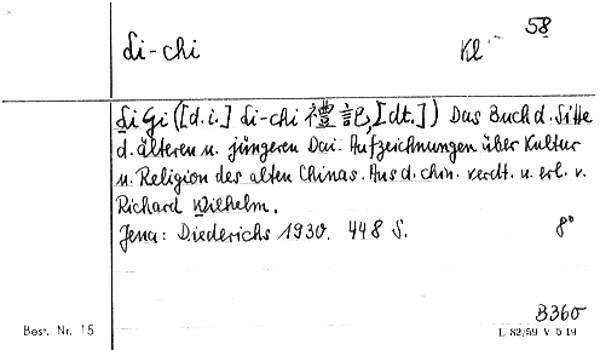 58
Li-chi Kl
Li Gi ([d.i.] Li-chi 禮記, [dt.]) Das Buch d. Sitte
d. älteren u. jüngeren Dai. Aufzeichnungen über Kultur
u. Religion des alten Chinas. Aus d. chin. verdt. u. erl. v.
Richard Wilhelm.
Jena: Diederichs 1930. 448 S. 8°
B360
Best. Nr. 15 L 82/59 V 5 19